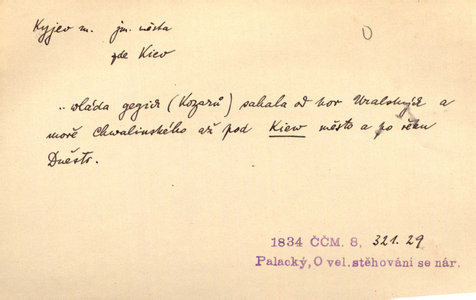 Kyjev m. jm. města
zde Kiev
.. wláda gegich (Kozarů) sahala od hor Uralských a
moře Chwalinského až pod Kiew město a po řeku
Dněstr.
1834 ČČM. 8, 321.29
Palacký, O vel. stěhování se nár.